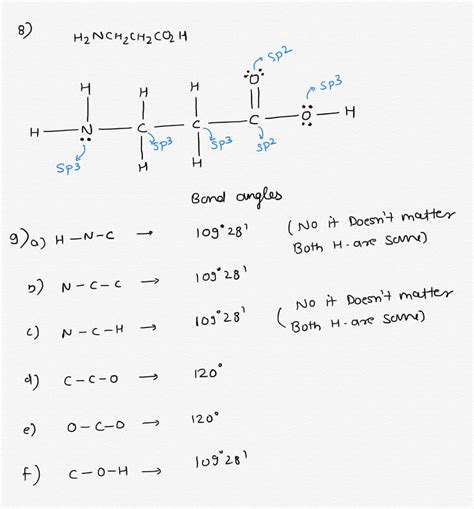 8)
H2NCH2CH2CO2H
Sp2
H H H O Sp3
H—N—C—C—C—O—H
Sp3 Sp3 Sp3 Sp2
H H
Bond angles
9) a) H—N—C → 109°28' (No it Doesn't matter
Both H. are same)
b) N—C—C → 109°28'
c) N—C—H → 109°28' (No it Doesn't matter
Both H. are same)
d) C—C—O → 120°
e) O—C—O → 120°
f) C—O—H → 109°28'